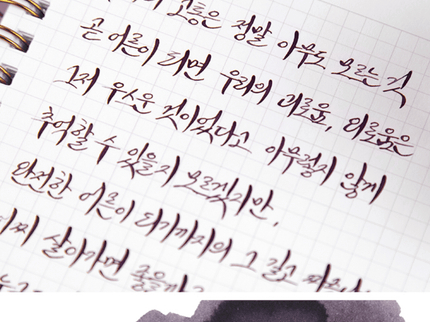 고통은 정말 아무도 모르는 것
곧 어른이 되면 우리의 괴로움, 외로움은
그저 우스운 것이었다고 아무렇지 않게
추억할 수 있을지 모르겠지만,
완전한 어른이 되기까지의 그 길고
살아가면 좋을